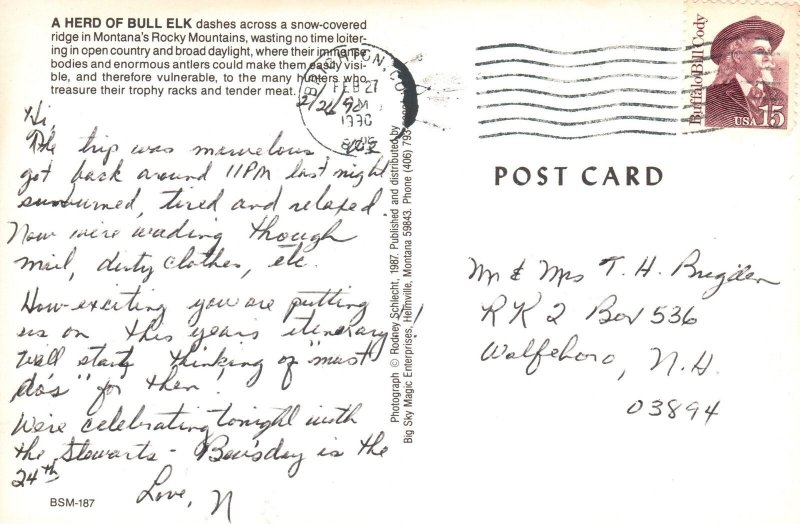 A HERD OF BULL ELK dashes across a snow-covered
ridge in Montana's Rocky Mountains, wasting no time loiter-
ing in open country and broad daylight, where their immense
bodies and enormous antlers could make them easily visi-
ble, and therefore vulnerable, to the many hunters who
treasure their trophy racks and tender meat.
FEB 27
PM
1990
2/26/90
Hi,
The trip was marvelous we
got back around 11PM last night
sunburned, tired and relaxed.
Now we're wading though
mail, dirty clothes, etc.
How exciting you are putting
us on this years itinerary!
Well start thinking of "must
dos" for then.
We're celebrating tonight with
the Stewarts - Bev'sday is the
24th
Love, N
BSM-187
Photograph © Rodney Schlecht, 1987. Published and distributed by
Big Sky Magic Enterprises, Helmville, Montana 59843. Phone (406) 793
Buffalo Bill Cody
USA 15
POST CARD
Mr & Mrs T. H. Brigden
RR 2 Box 536
Wolfeboro, N.H.
03894